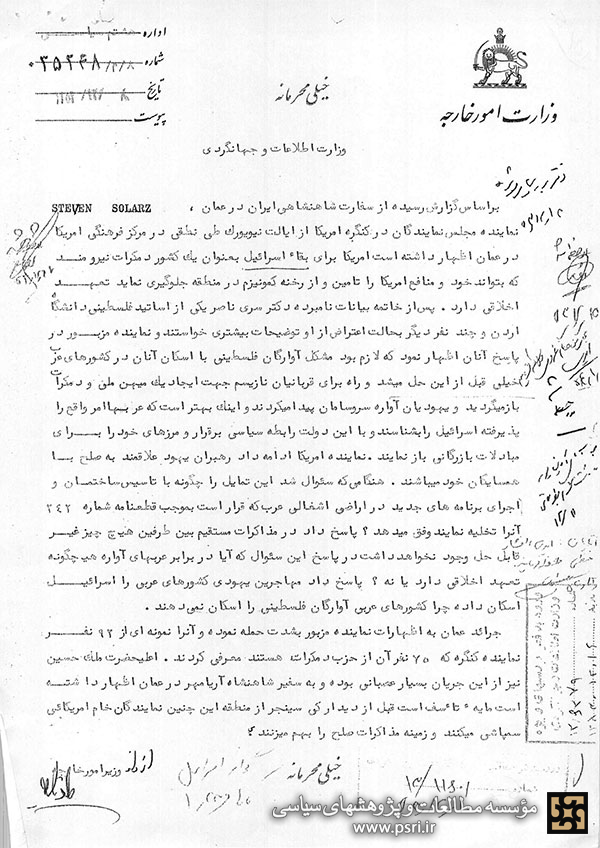 اداره هشتم سیاسی
شماره ۰۳۵۲۴۸/م/۸
تاریخ
پیوست
خیلی محرمانه
وزارت امور خارجه
وزارت اطلاعات و جهانگردی
براساس گزارش رسیده از سفارت شاهنشاهی ایران در عمان ، STEVEN SOLARZ
نماینده مجلس نمایندگان در کنگره امریکا از ایالت نیویورك طی نطقی در مرکز فرهنگی امریکا
در عمان اظهار داشته است امریکا برای بقاء اسرائیل بعنوان یك کشور دمکرات نیرومند
که بتواند خود و منافع امریکا را تامین و از رخنه کمونیزم در منطقه جلوگیری نماید تعهد
اخلاقی دارد . پس از خاتمه بیانات نامبرده دکتر سری ناصر یکی از اساتید فلسطینی دانشگاه
اردن و چند نفر دیگر بحالت اعتراض از او توضیحات بیشتری خواستند و نماینده مزبور در
پاسخ آنان اظهار نمود که لازم بود مشکل آوارگان فلسطینی با اسکان آنان در کشورهای عرب
خیلی قبل از این حل میشد و راه برای قربانیان نازیسم جهت ایجاد یك میهن ملی و دمکرات
باز میگردید و یهودیان آواره سروسامان پیدا میکردند و اینك بهتر است که عربها امر واقع را
پذیرفته اسرائیل را بشناسند و با این دولت رابطه سیاسی برقرار و مرزهای خود را برای
مبادلات بازرگانی باز نمایند . نماینده امریکا ادامه داد رهبران یهود علاقمند به صلح با
همسایگان خود میباشند . هنگامی که سئوال شد این تمایل را چگونه با تاسیس ساختمان و
اجرای برنامه های جدید در اراضی اشغالی عرب که قرار است بموجب قطعنامه شماره ۲۴۲
آنرا تخلیه نمایند وفق میدهد ؟ پاسخ داد در مذاکرات مستقیم بین طرفین هیچ چیز غیر
قابل حل وجود نخواهد داشت در پاسخ این سئوال که آیا در برابر عربهای آواره هیچگونه
تعهد اخلاقی دارد یا نه ؟ پاسخ داد مهاجرین یهودی کشورهای عربی را اسرائیل
اسکان داده چرا کشورهای عربی آوارگان فلسطینی را اسکان نمیدهند .
جرائد عمان به اظهارات نماینده مزبور بشدت حمله نموده و آنرا نمونه ای از ۹۲ نفر
نماینده کنگره که ۷۵ نفر آن از حزب دمکرات هستند معرفی کردند . اعلیحضرت ملك حسین
نیز از این جریان بسیار عصبانی بوده و به سفیر شاهنشاه آریامهر در عمان اظهار داشته
است مایه تاسف است قبل از دیدار کی سینجر از منطقه این چنین نمایندگان خام امریکائی
سمپاشی میکنند و زمینه مذاکرات صلح را بهم میزنند .
از طرف وزیر امور خارجه
خیلی محرمانه
مؤسسه مطالعات و پژوهشهای سیاسی
www.psri.ir